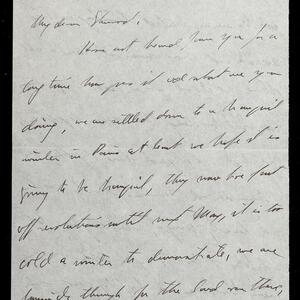 My dear Sherwood,
Have not heard from you for a
long time hope you is well what are you
doing, we are settled down to a tranquil
winter in Paris at least we hope it is
going to be tranquil, they now have put
off revolutions until next May, it is too
cold a winter to demonstrate, we are
for the